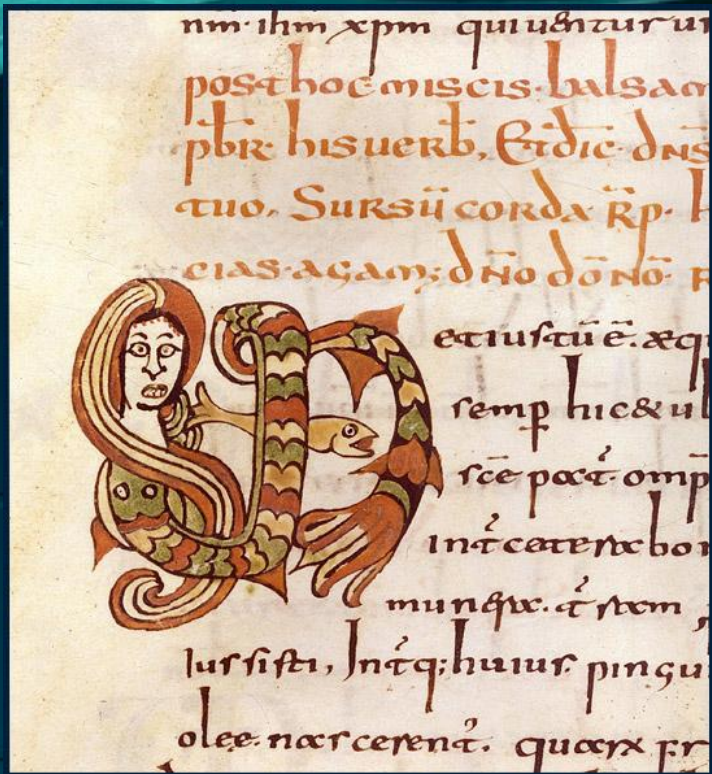 nm̅·ihm̅ xp̅m quiuenturur
posthoc miscis·balsam
pbr̅ his uerb̅, Et dic̅ dn̅s
tuo, Sursū corda R̅p· h
cias·agam; dn̅o dō nō· R
et iustū ē̅. æqu
semp̅ hic & ub
sc̅e pat̅· omp
int̅ cetera bo
munera. t̅ ram
Iussisti, Int̅q; huius pingu
olee nascerent̅. quarx fr